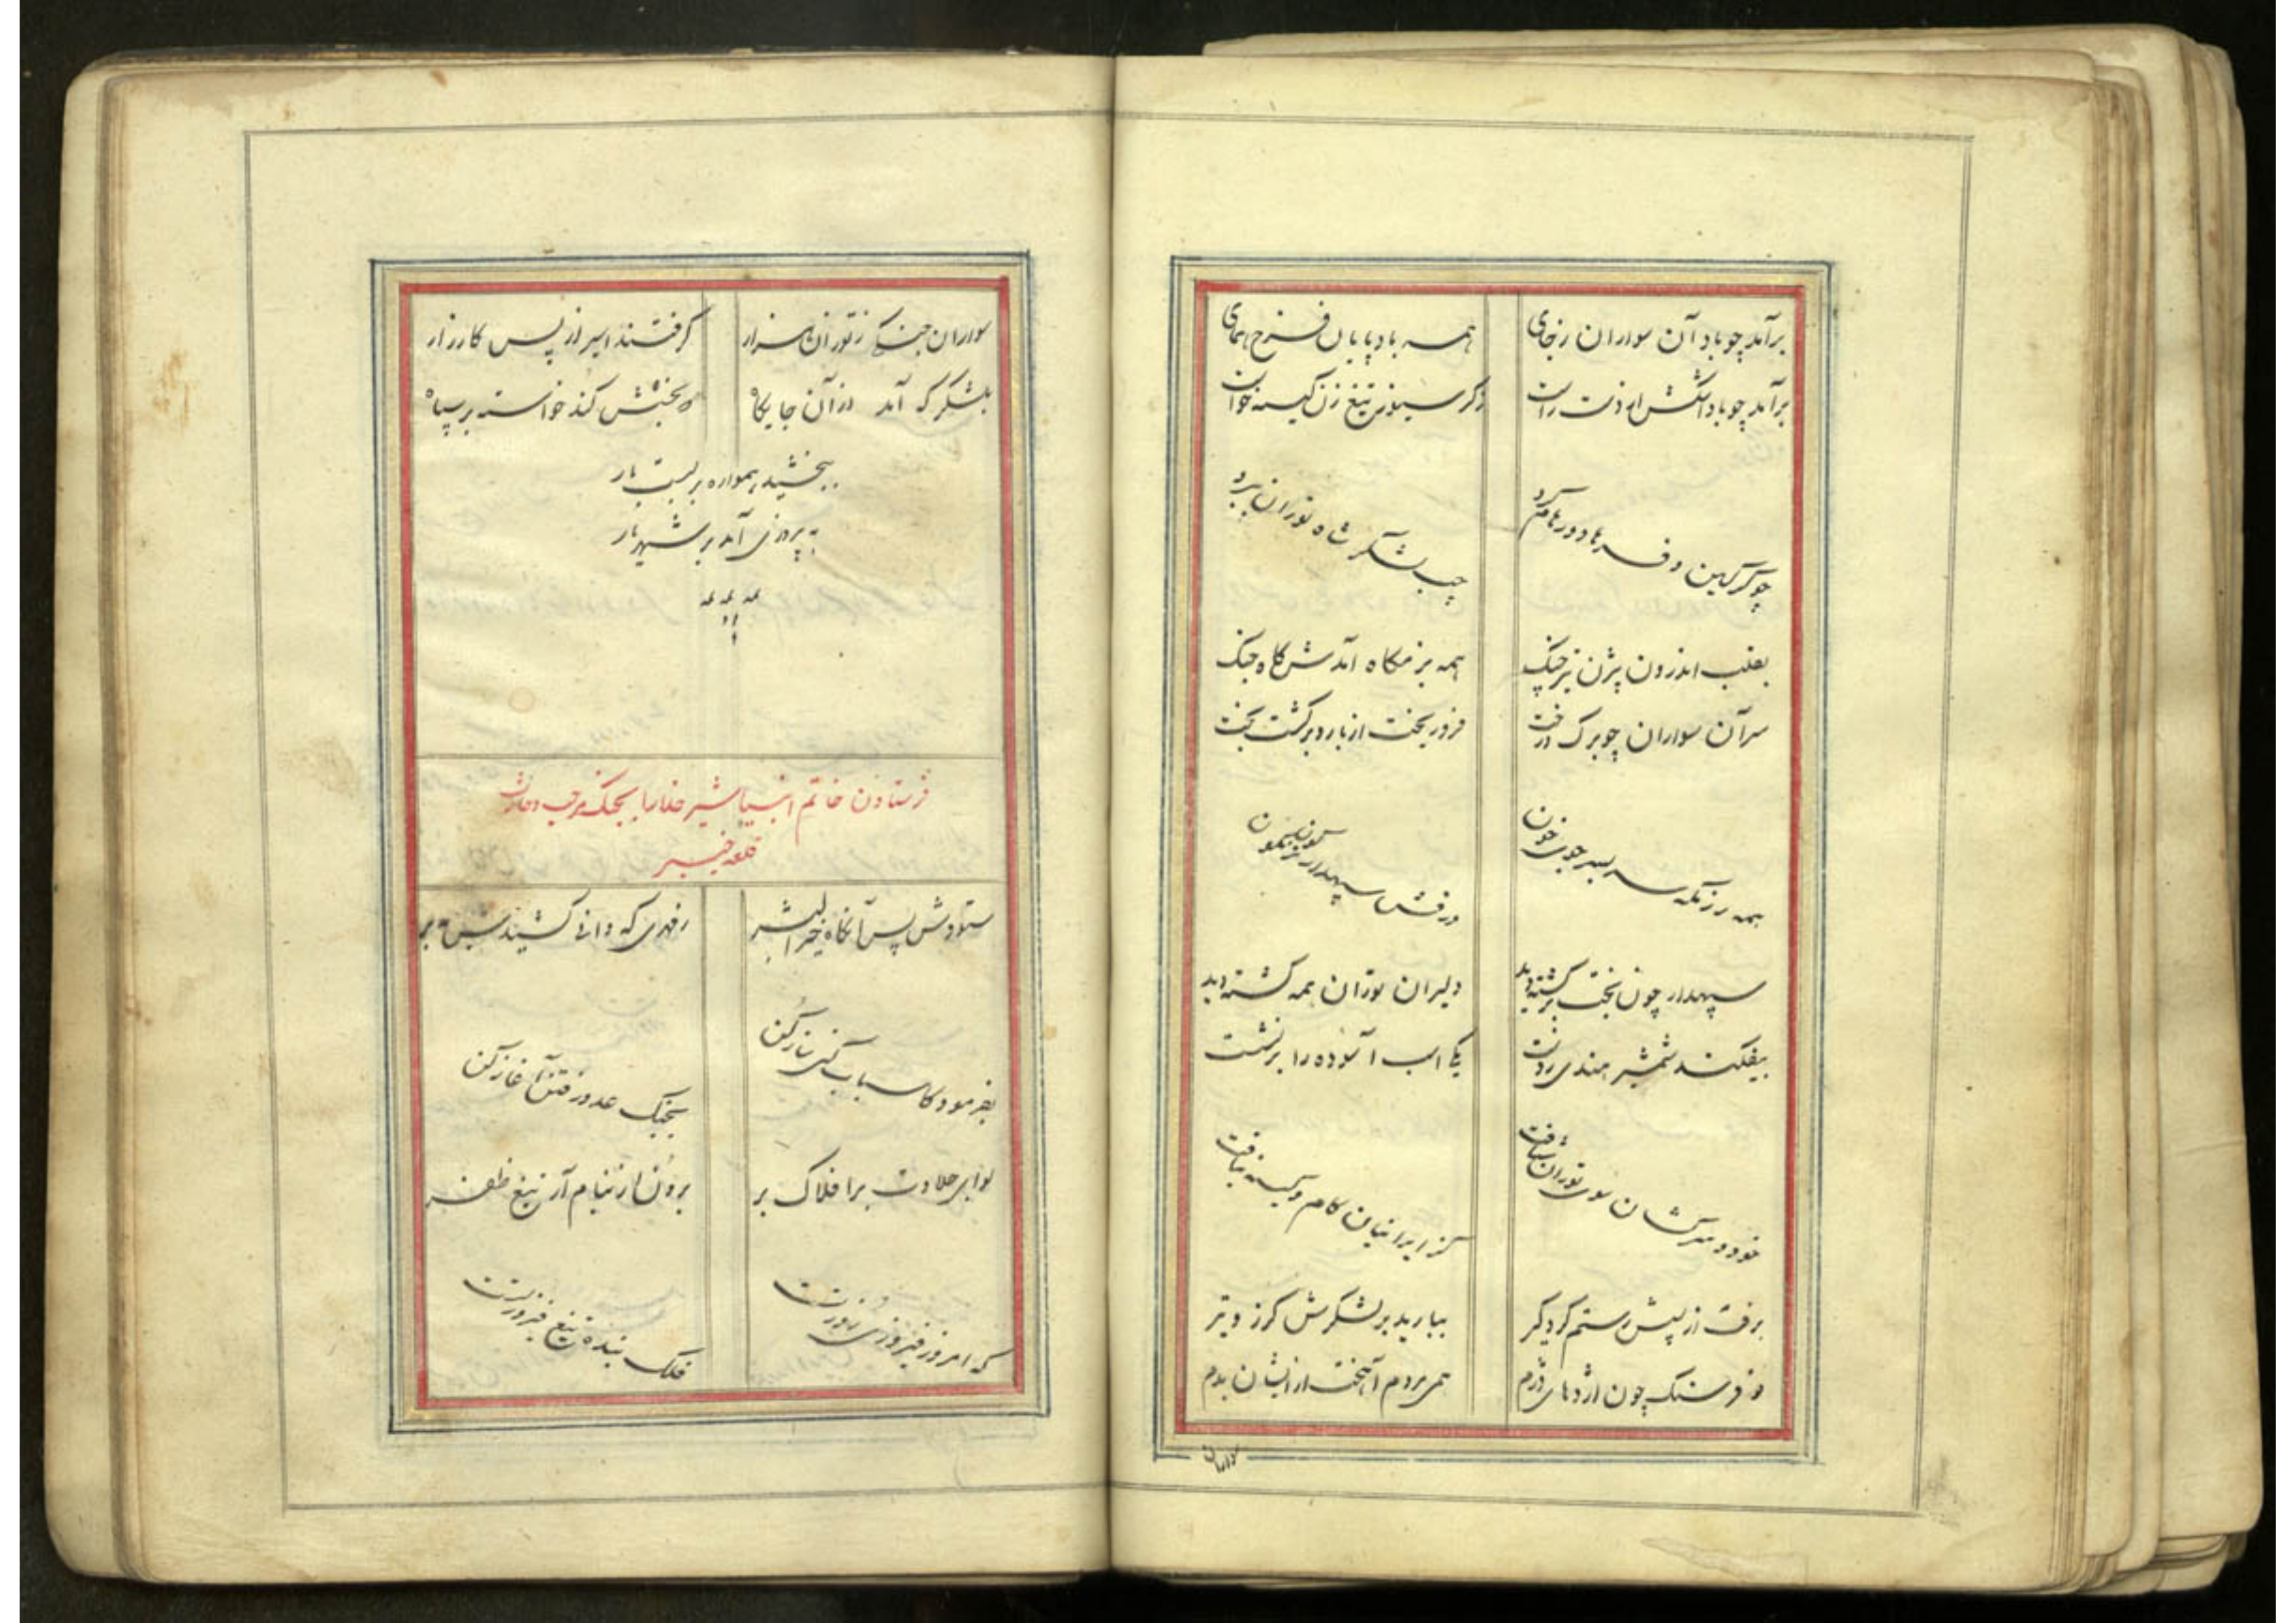 برآمد چو باد آن سواران زجای
همه بادپایان فرخ همای
برآمد چو باد اشکش از دست راست
ز گرسیوز تیغ زن کینه خواست
چو گرگین و فرهاد و رهام گرد
چپ لشکر شاه توران ببرد
بقلب اندرون بیژن تیز چنگ
همه بزمگاه آمدش گاه جنگ
سر آن سواران چو برگ درخت
فرو ریخت از بار و برگشت بخت
همه رزمگه سربسر جوی خون
درفش سپهدار توران نگون
سپهدار چون بخت برگشته دید
دلیران توران همه کشته دید
بیفکند شمشیر هندی ز دست
یکی اسب آسوده را برنشست
خود و سرکشان سوی توران شتافت
کز ایرانیان کام و کینه نیافت
برفت از پیش رستم گردگیر
ببارید بر لشکرش گرز و تیر
دو فرسنگ چون اژدهای دژم
همی مردم آهیخت ازایشان بدم
سواران
سواران جنگی ز توران هزار
گرفتند اسیر از پس کارزار
بلشکرگه آمد از آن جایگاه
که بخشش کند خواسته بر سپاه
ببخشید همواره بربست بار
به پیروزی آمد بر شهریار
فرستادن خاتم انبیا شیر خدا را بجنگ مرحب و حارث
قلعه خیبر
ستودش پس آنگاه خیر البشر
بفرمود کاسباب کین ساز کن
بجنگ عدو رفتن آغاز کن
لوای جلادت بر افلاک بر
برون از نیام آر تیغ ظفر
که امروز فیروزی روز تست
فلک بنده تیغ فیروز تست